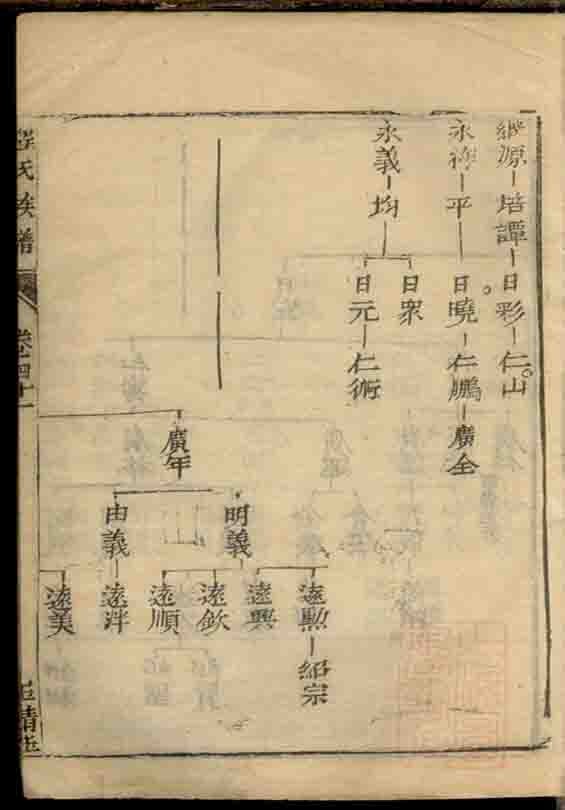 繼源 培譚 日彩 仁山
永祿 平 日曉 仁鵬 廣全
永義 均
日眾
日元 仁術
廣年
明義
由義
遠勳 紹宗
遠興
遠欽
遠順
遠泮
遠美
氏族譜